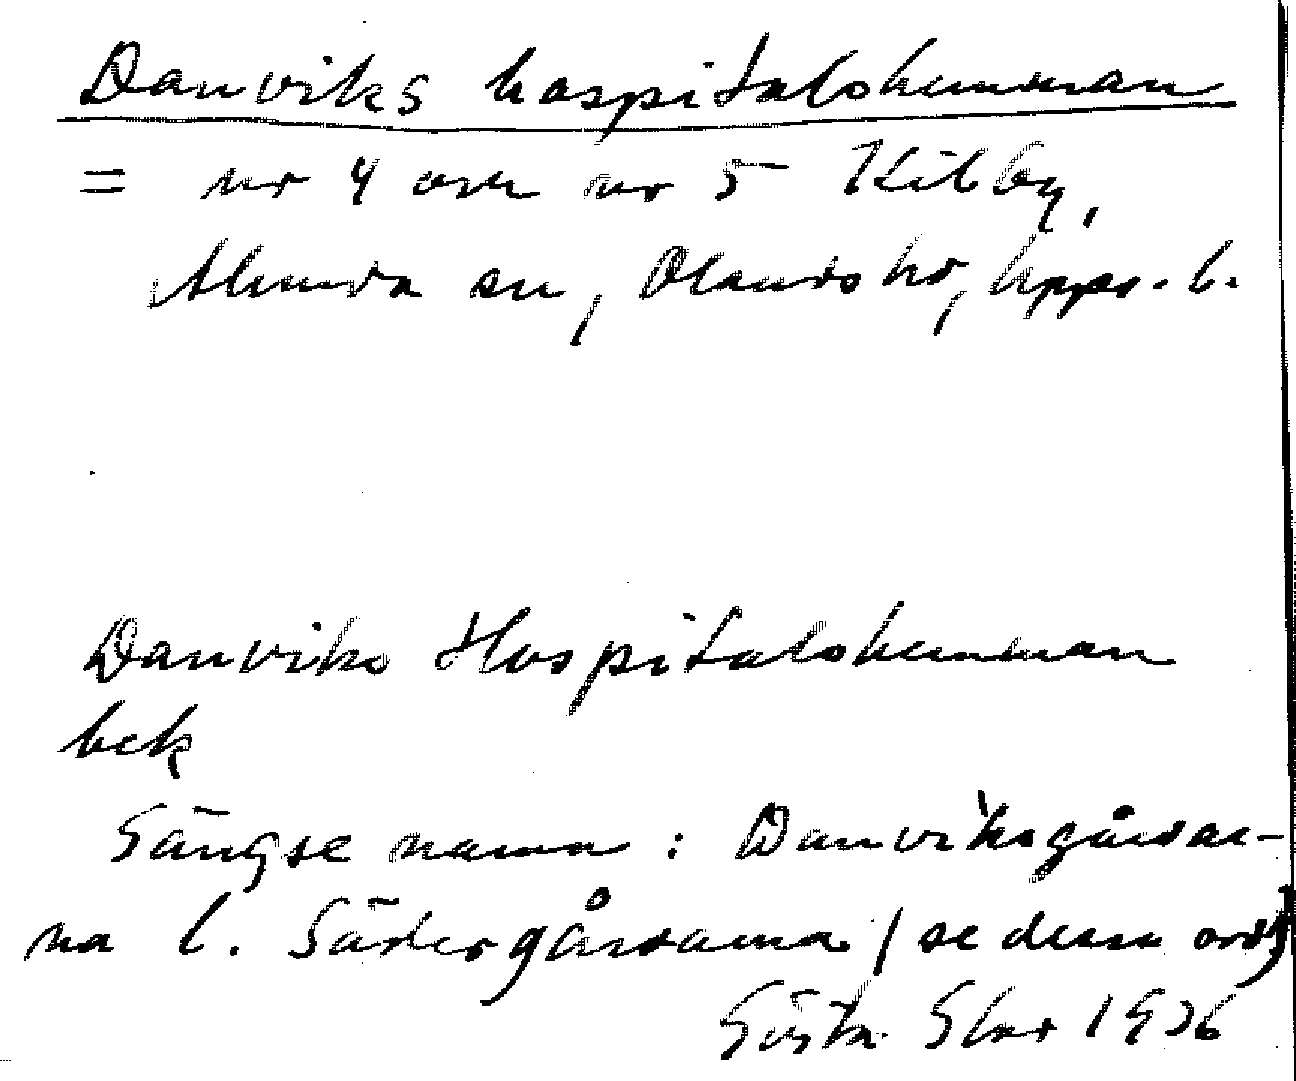 Danviks hospitalshemman
= nr 4 och nr 5 Kilby,
Alunda sn, Olands hd, Upps. l.
Danviks Hospitalshemman
bek
Gängse namn: Danviksgårdar-
na l. Södergårdarna (se dessa ord)
Gösta 1936